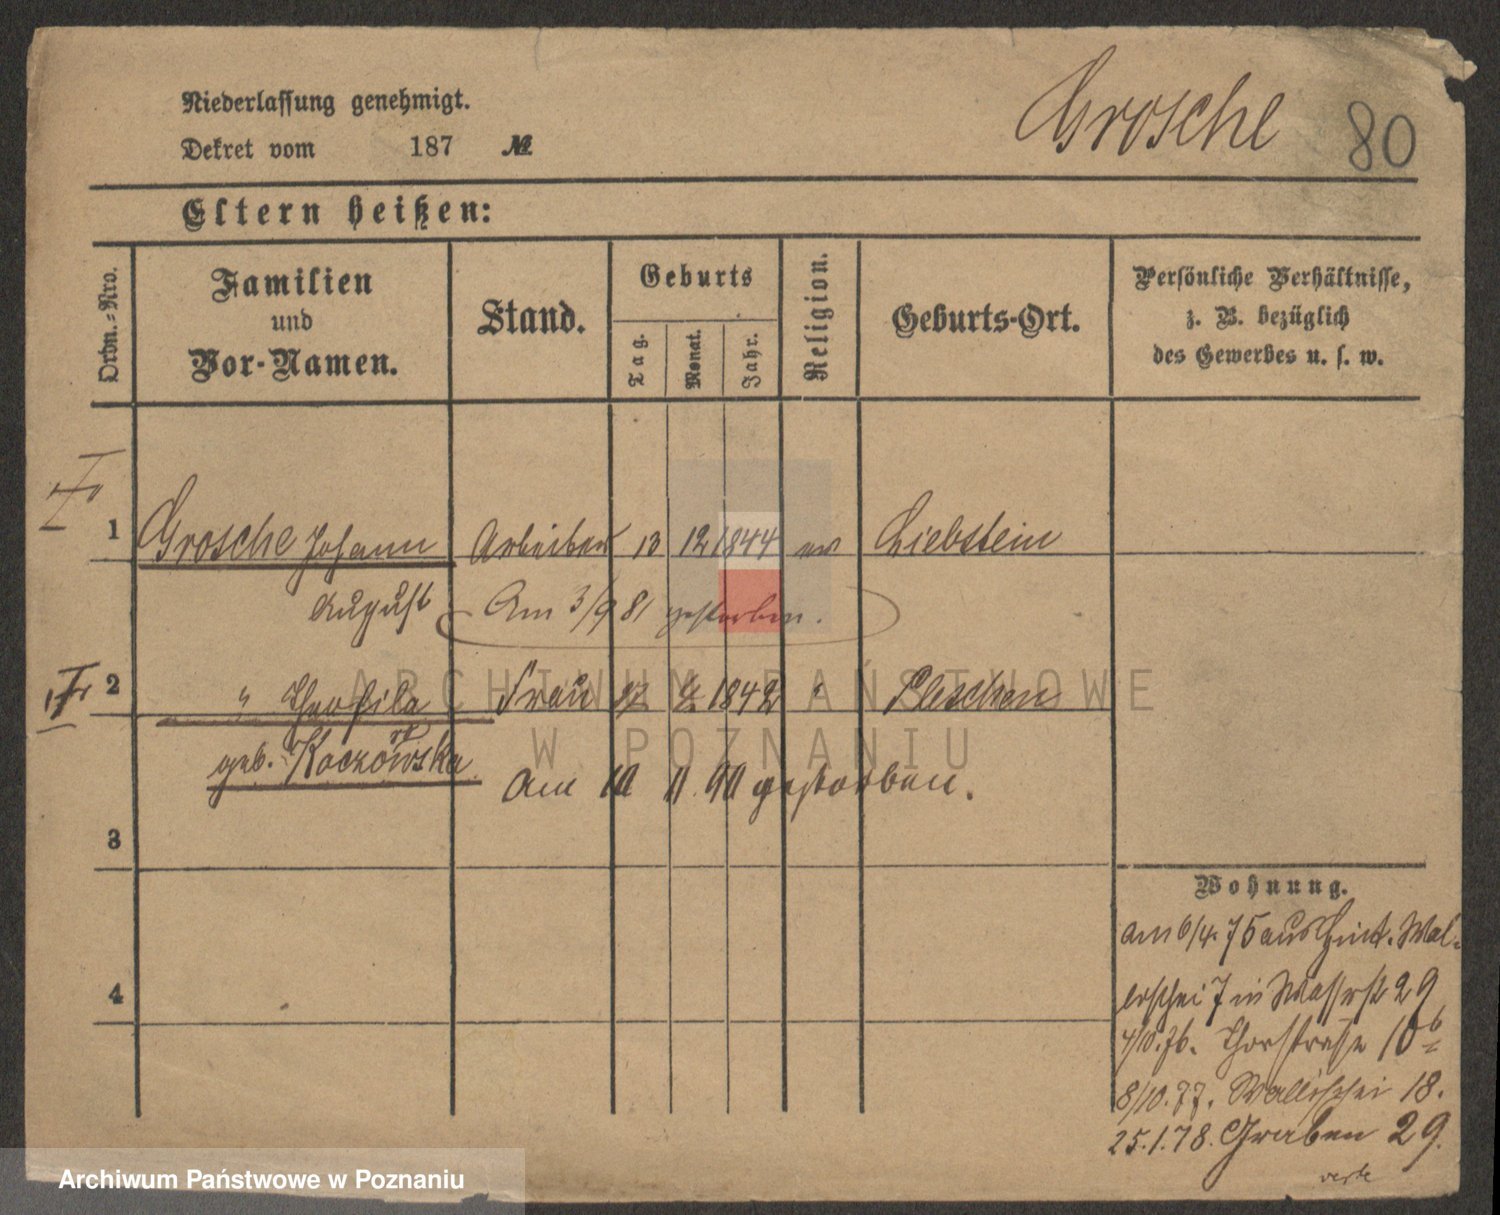 Niederlassung genehmigt.
Dekret vom 187 №
Grosche 80
Eltern heißen:
Ordn.-Nro.
Familien
und
Vor-Namen.
Stand.
Geburts
Tag.
Monat.
Jahr.
Religion.
Geburts-Ort.
Persönliche Verhältnisse,
z. B. bezüglich
des Gewerbes u. s. w.
1 Grosche Johann Arbeiter 13 12 1844 ev Liebstein
August Am 3/9 81 gestorben.
2 " Theofila Frau 1842 " Pleschen
geb. Koczowska
Am 10 11 90 gestorben.
3
4
Wohnung.
am 6/4. 75 aus Hint. Wal-
lischei 7 in Wasserst 29
4/10. 76. Thorstrasse 10 b
8/10. 77. Wallischei 18.
25.1.78. Graben 29.
verte
ARCHIWUM PAŃSTWOWE
W POZNANIU
Archiwum Państwowe w Poznaniu